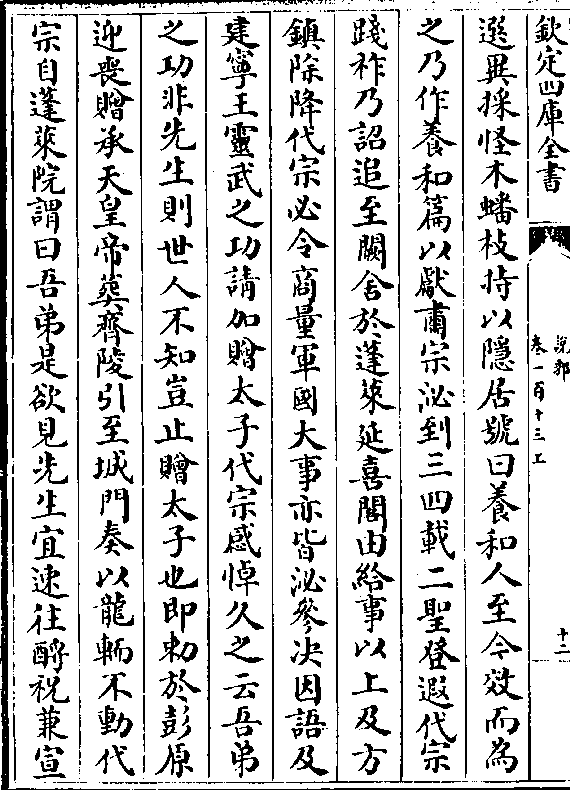 欽定四庫全書
說郛
卷一百十三上
十二
遊異採怪木蟠枝持以隱居號曰養和人至今效而為
之乃作養和篇以獻肅宗泌到三四載二聖登遐代宗
踐祚乃詔追至闕舍於蓬萊延喜閣由給事以上及方
鎮除降代宗必令商量軍國大事亦皆泌參决因語及
建寧王靈武之功請加贈太子代宗感悼久之云吾弟
之功非先生則世人不知豈止贈太子也即勅於彭原
迎喪贈承天皇帝葬齊陵引至城門奏以龍輀不動代
宗自蓬萊院謂曰吾弟是欲見先生宜速往酹祝兼宣